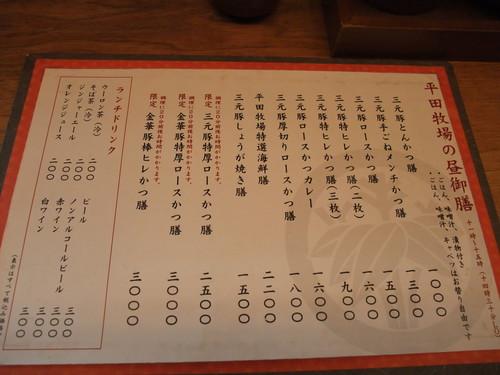 平田牧場の昼御膳
十一時〜十五時(十四時三十分L.O)
・ごはん、味噌汁、漬物付き
・ごはん、味噌汁、キャベツはお替り自由です
三元豚とんかつ膳 一〇〇〇
三元豚手ごねメンチかつ膳 一三〇〇
三元豚ロースかつ膳 一五〇〇
三元豚特ヒレかつ膳(二枚) 一六〇〇
三元豚特ヒレかつ膳(三枚) 一九〇〇
三元豚ロースかつカレー 一六〇〇
三元豚厚切りロースかつ膳 一八〇〇
平田牧場特選海鮮膳 二二〇〇
三元豚しょうが焼き膳 一五〇〇
調理に20分前後お時間がかかります。
限定 三元豚特厚ロースかつ膳 二五〇〇
調理に20分前後お時間がかかります。
限定 金華豚特厚ロースかつ膳 三〇〇〇
調理に20分前後お時間がかかります。
限定 金華豚棒ヒレかつ膳 三〇〇〇
ランチドリンク
ウーロン茶(冷) 二〇〇
そば茶(冷)
ジンジャーエール 二〇〇
オレンジジュース 二〇〇
ビール 三〇〇
ノンアルコールビール 三〇〇
赤ワイン 三〇〇
白ワイン 三〇〇
(表示はすべて税込み価格